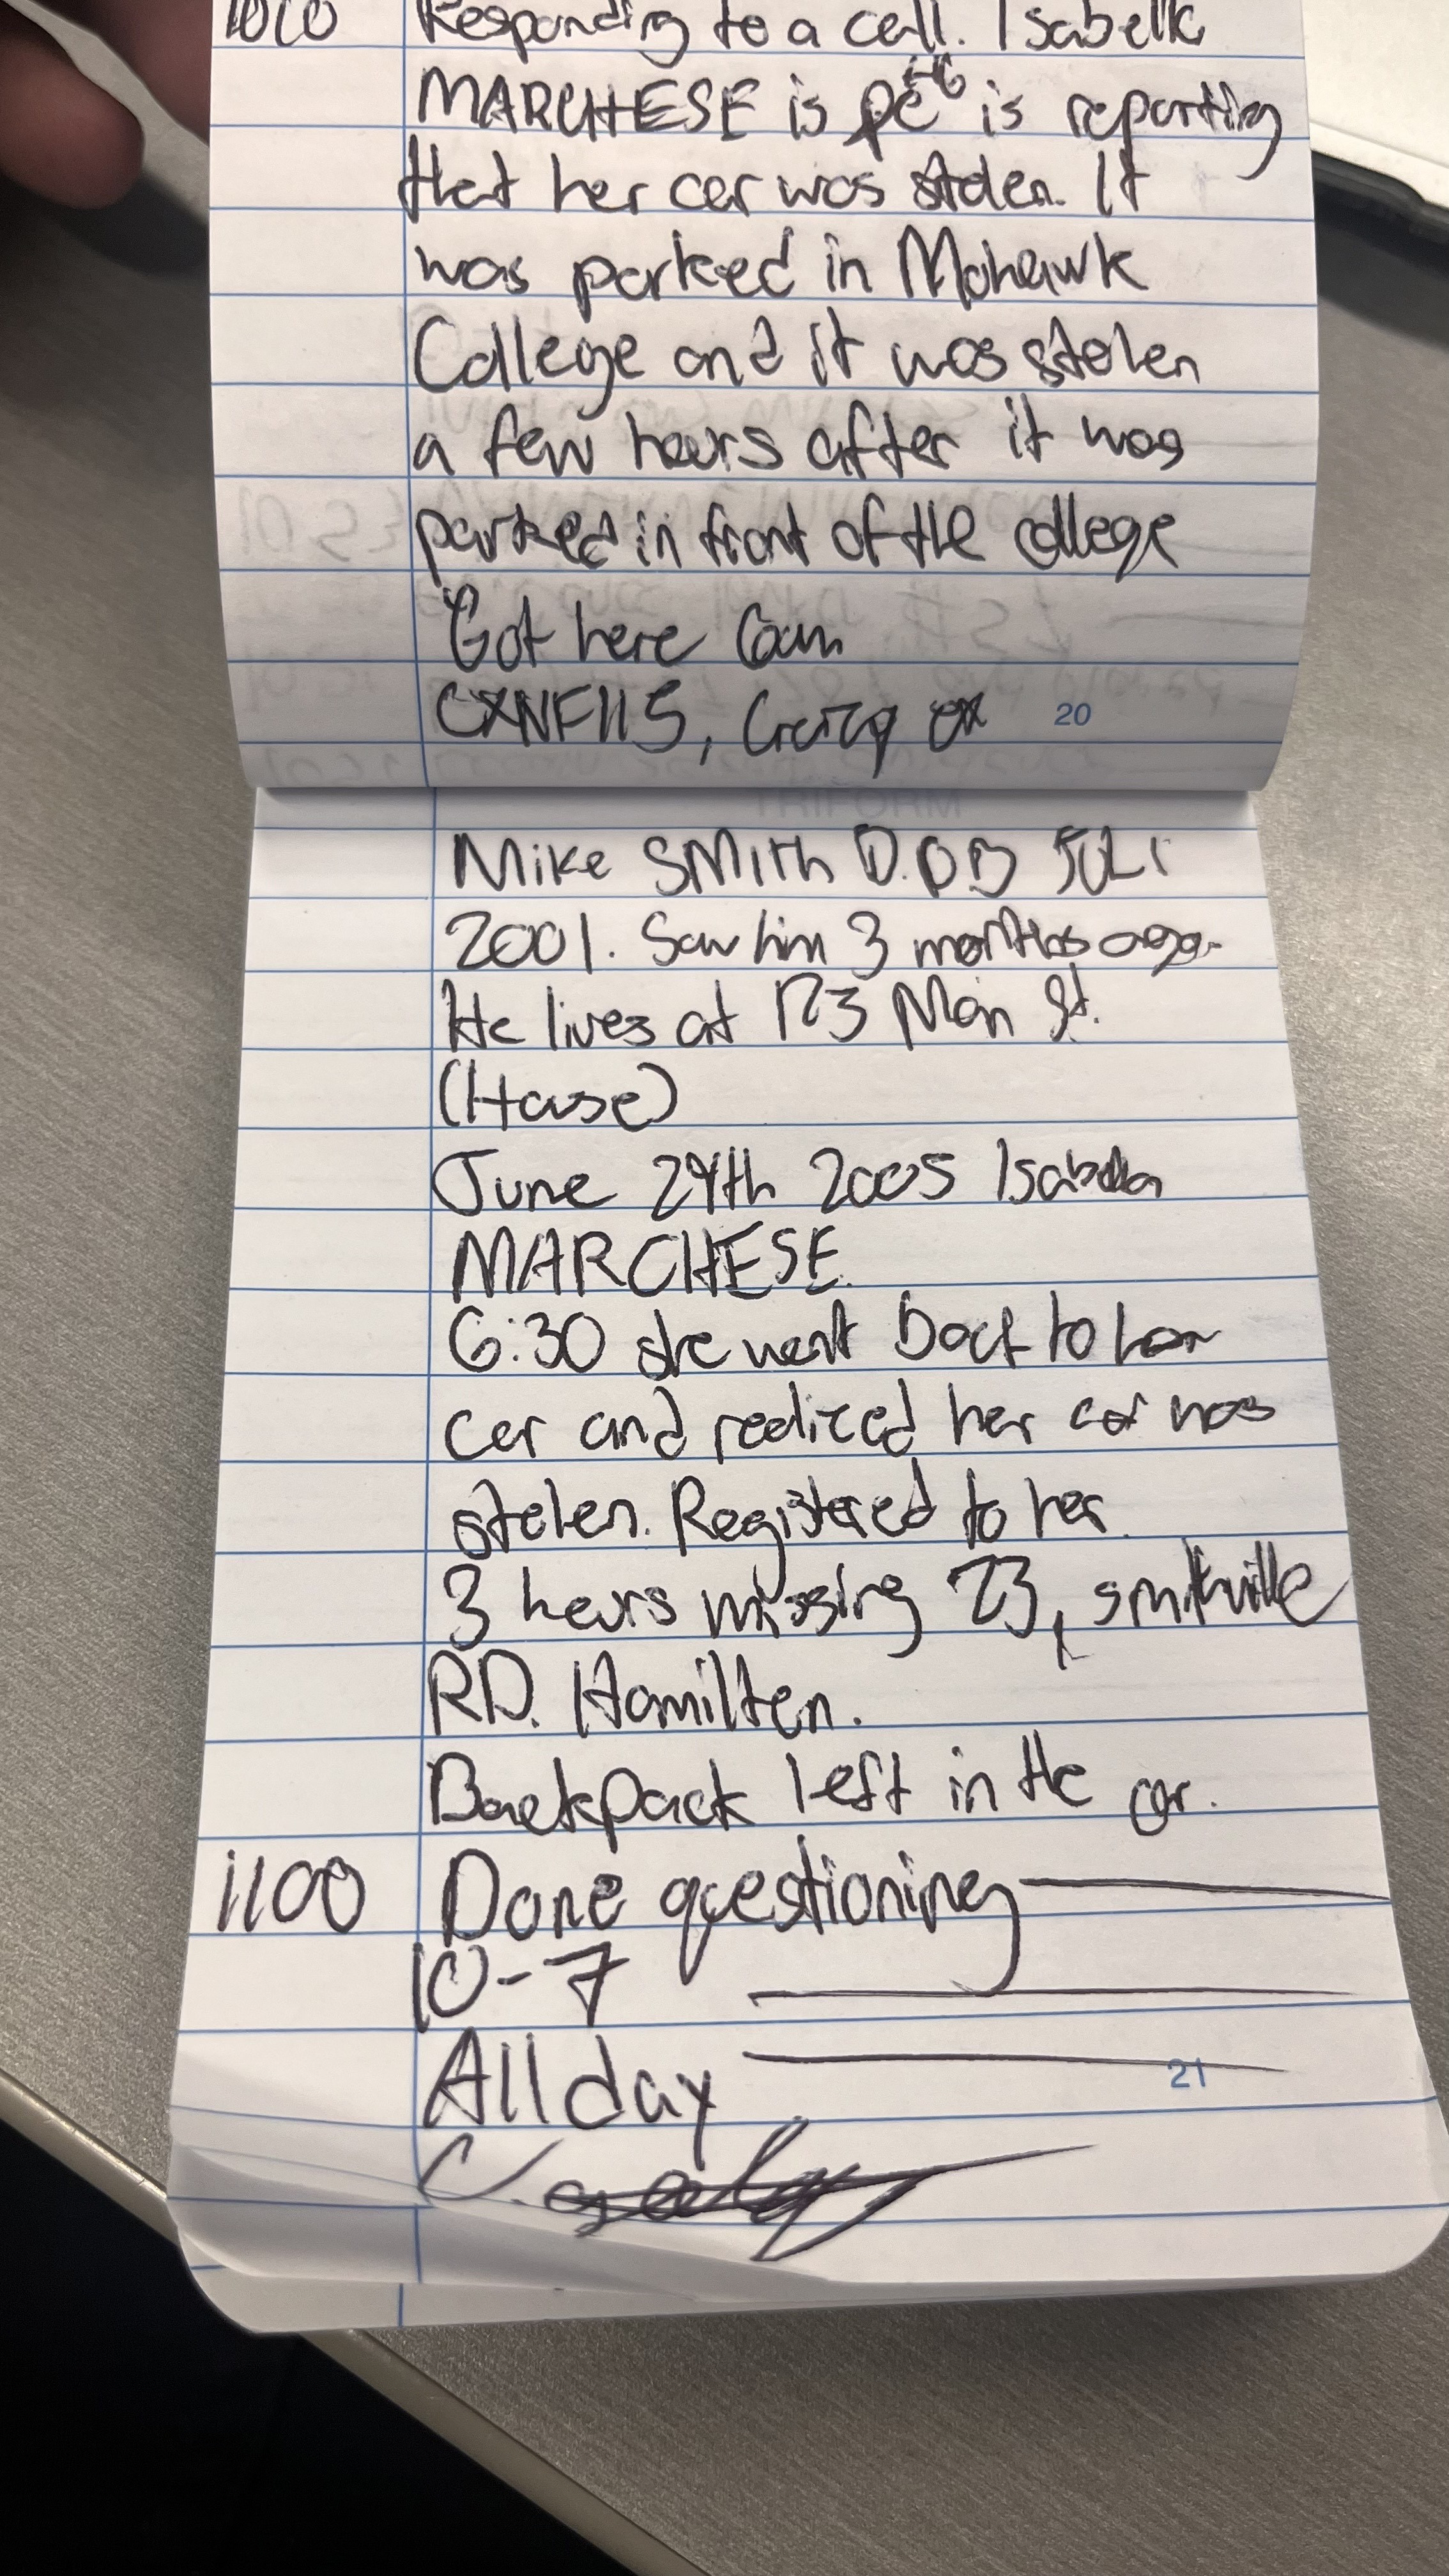 1010 Responding to a call. Isabella
MARCHESE is is reporting
that her car was stolen. It
was parked in Mohawk
College and it was stolen
a few hours after it was
parked in front of the college
Got here 6am
CXNF115, ex 20
Mike SMITH D.O.B
2001. Saw him 3 months ago.
He lives at 123 Main St.
(House)
June 24th 2005 Isabella
MARCHESE.
6:30 she went back to her
car and realized her car was
stolen. Registered to her.
3 hours missing 23, smithville
RD. Hamilton.
Backpack left in the car.
1100 Done questioning
10-7
All day 21
C.